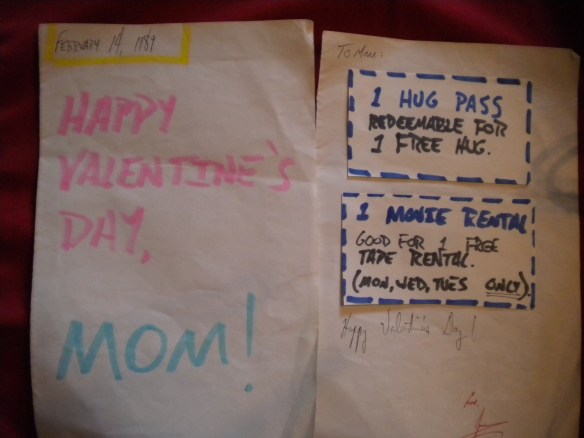 FEBRUARY 14, 1989
HAPPY
VALENTINE'S
DAY,
MOM!
To Mom:
1 HUG PASS
REDEEMABLE FOR
1 FREE HUG.
1 MOVIE RENTAL
GOOD FOR 1 FREE
TAPE RENTAL.
(MON, WED, TUES ONLY).
Happy Valentine's Day!